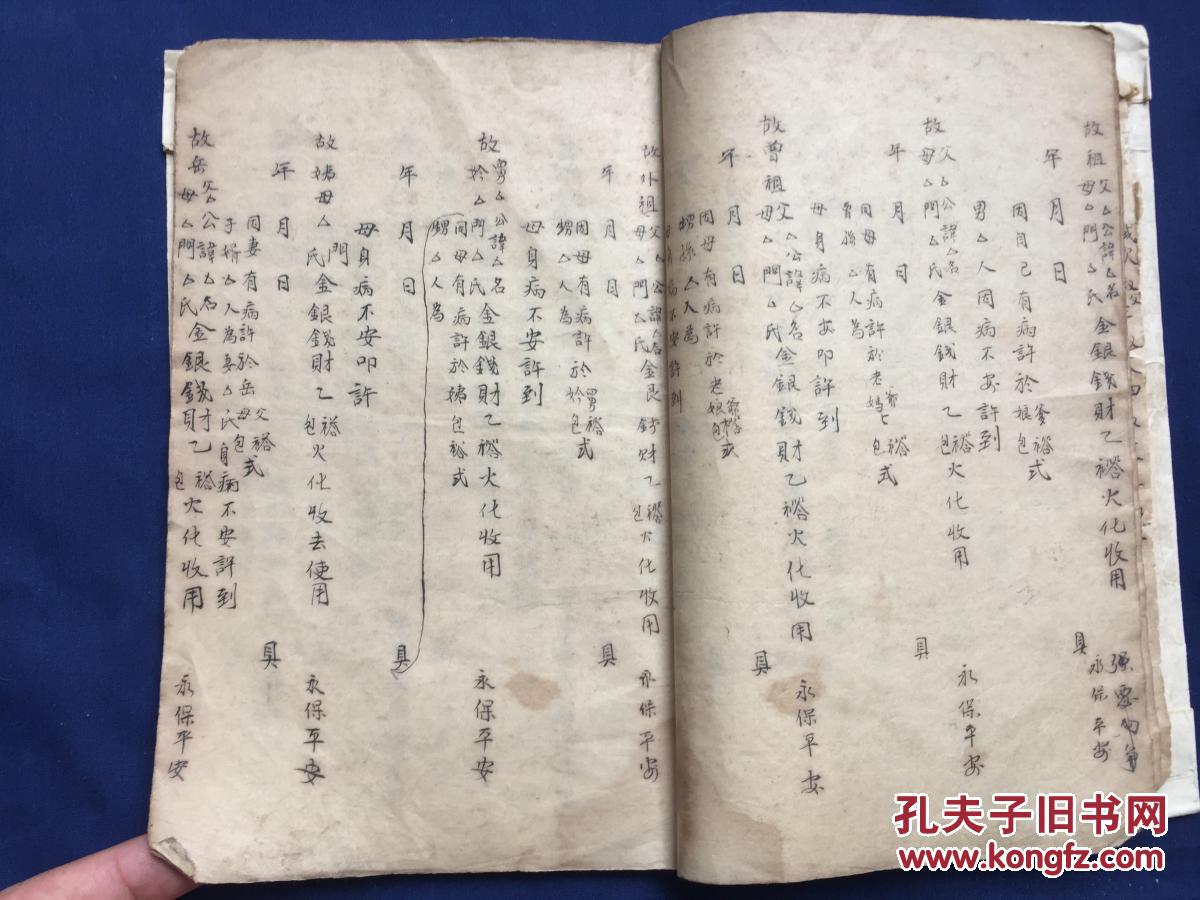 强霊勿争
永保平安
故祖父厶公諱厶名
母厶門厶氏
金銀錢財乙褡火化收用
年 月 日 具
因自己有病許於爹娘褡包式
男厶人因病不安許到
永保平安
故父厶公諱厶名
母厶門厶氏
金銀錢財乙褡包火化收用
年 月 日 具
因母有病許於老爺媽褡包式
曾孫厶人為
母身病不安叩許到
永保平安
故曾祖父厶公諱厶名
母厶門厶氏
金銀錢財乙褡火化收用
年 月 日 具
因母有病許於老爺娘褡包式
甥孫厶人為
母身病不安許到
永保平安
故外祖父厶公諱厶名
母厶門厶氏
金艮錢财乙褡包火化收用
年 月 日 具
因母有病許於舅妗褡包式
甥厶人為
母身病不安許到
永保平安
故舅厶公諱厶名
妗厶門厶氏
金銀錢財乙褡火化收用
因母有病許於姨包褡式
甥厶人為
年 月 日 具
母身病不安叩許
永保平安
故姨母厶門氏金銀錢財乙褡包火化收去使用
年 月 日 具
因妻有病許於岳父母褡包式
子婿厶人為妻厶氏身病不安許到
永保平安
故岳父厶公諱厶名
母厶門厶氏
金銀錢財乙褡包火化收用
孔夫子旧书网
www.kongfz.com